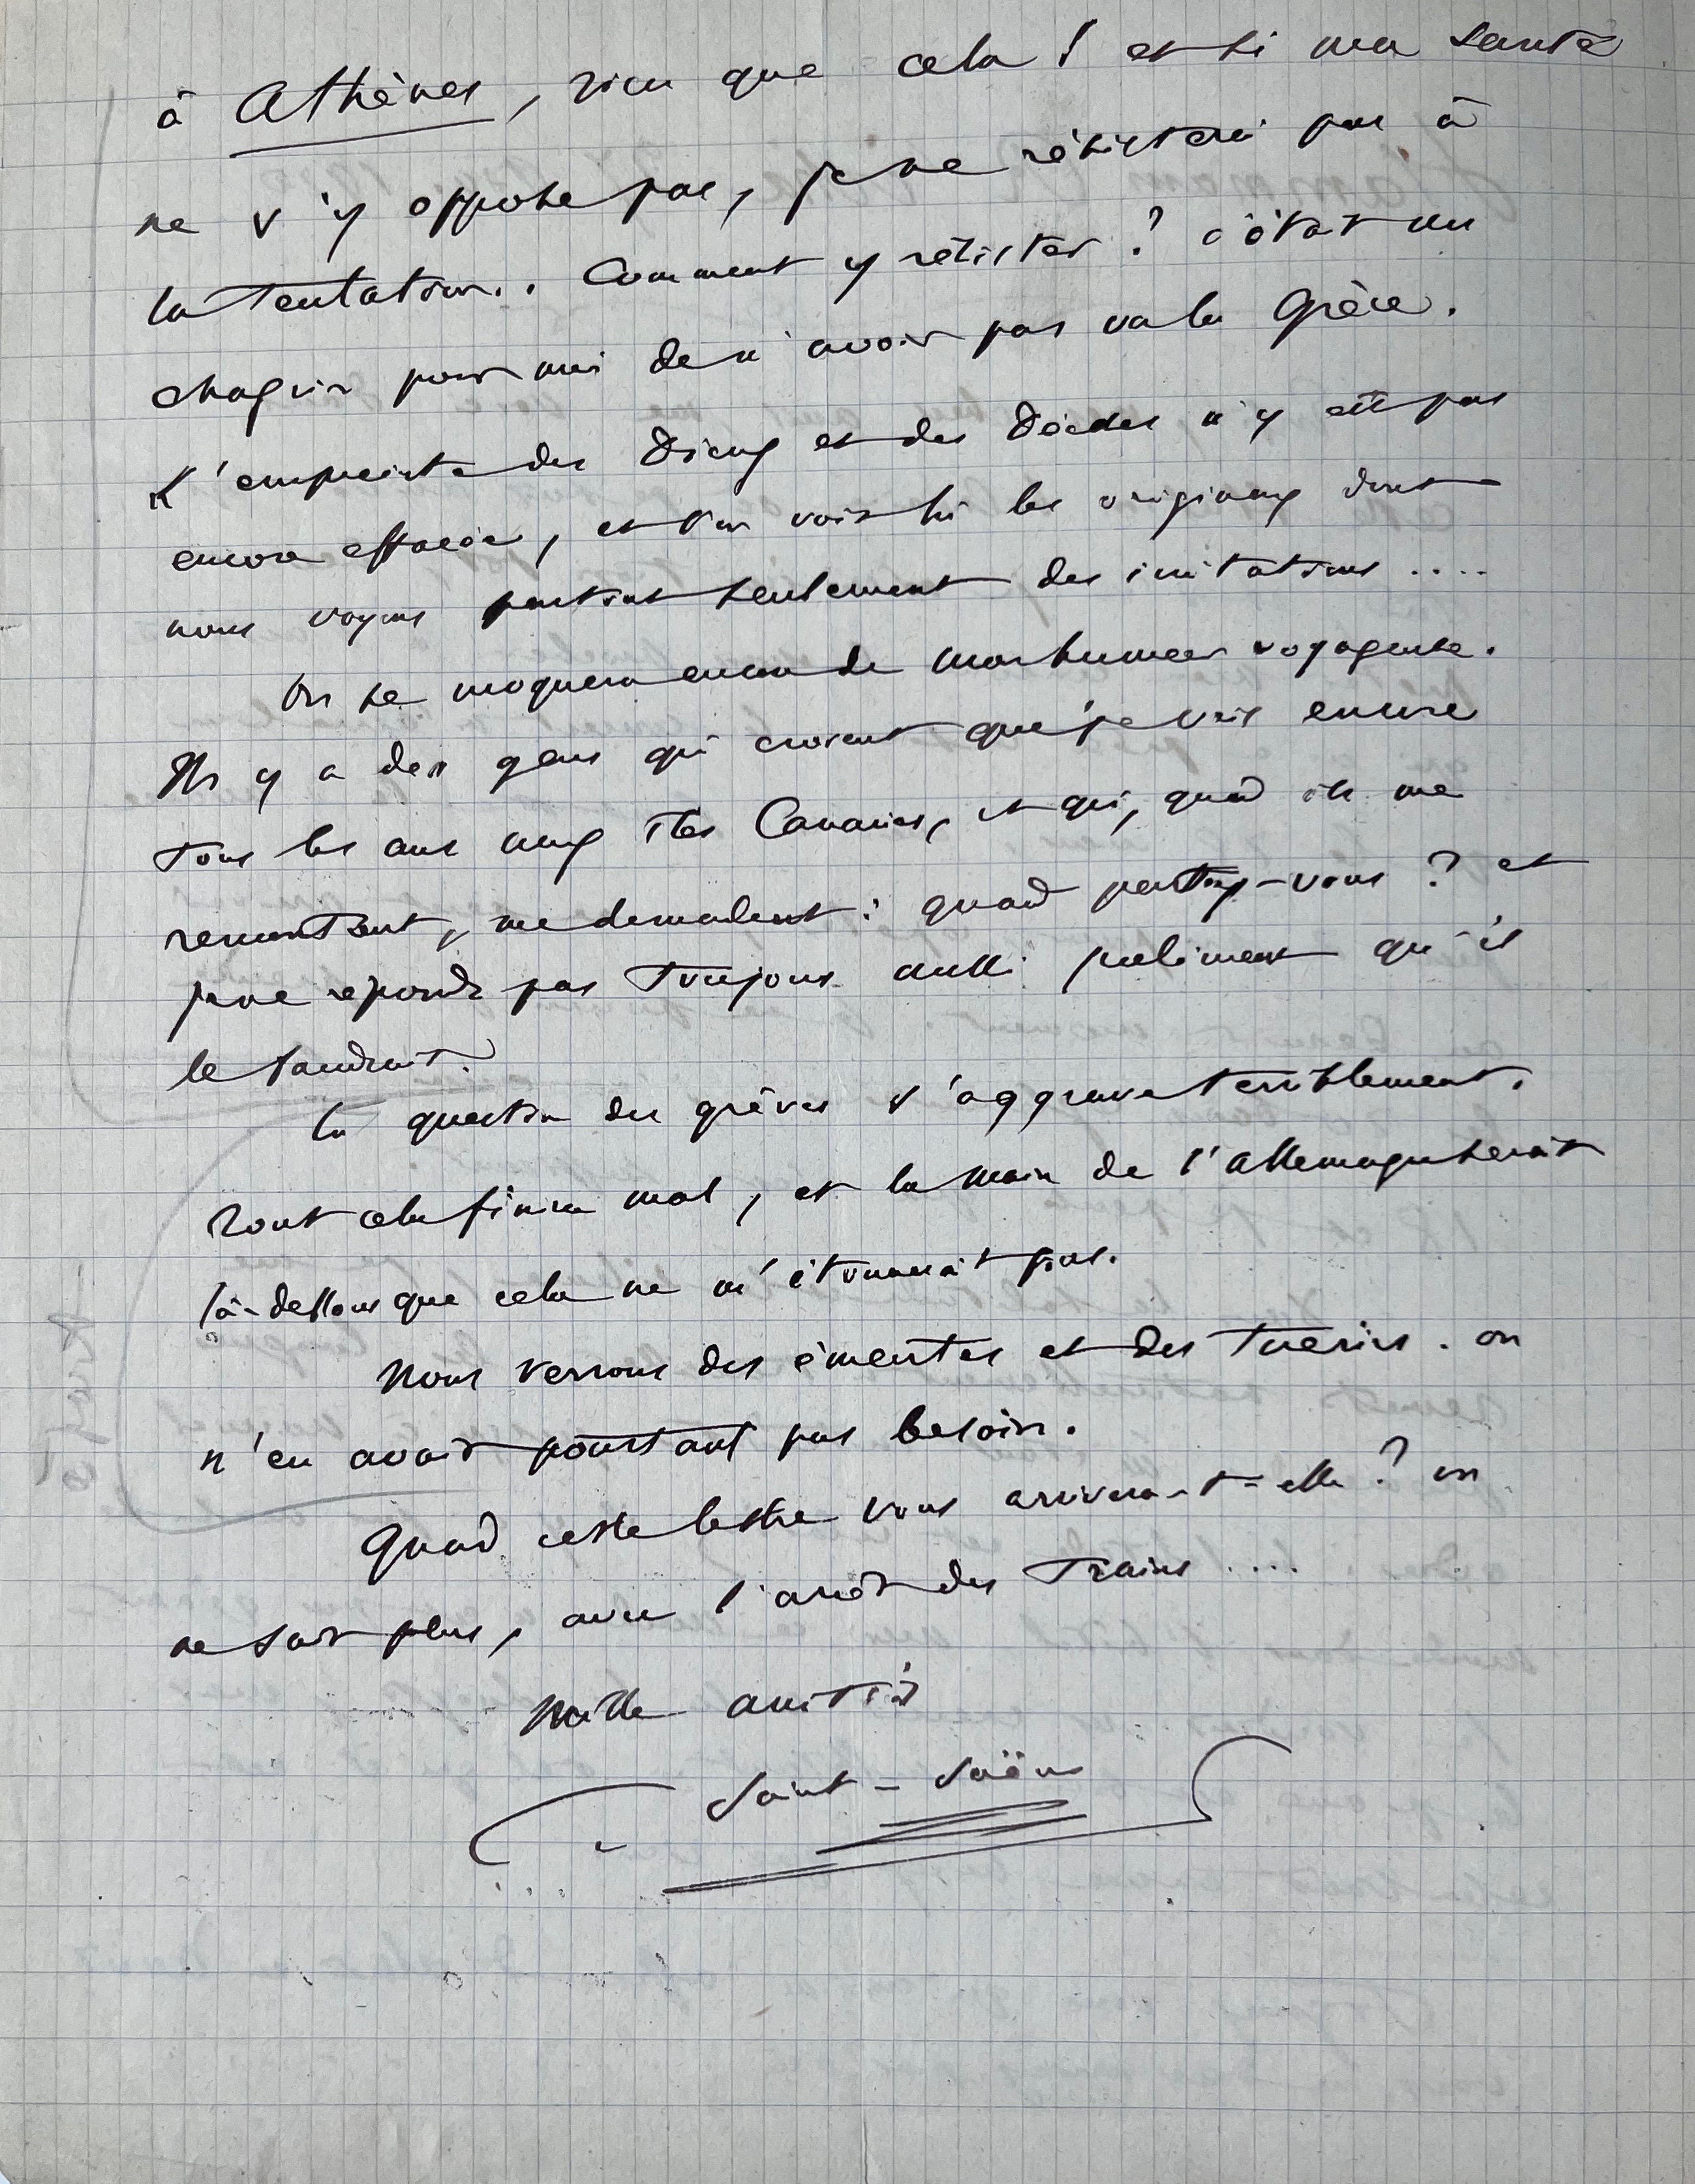 à Athènes, rien que cela ! et si ma santé
ne s'y oppose pas, je ne résisterai pas à
la tentation.. Comment y résister ? c'était un
chagrin pour moi de n'avoir pas vu la Grèce.
L'empreinte des Dieux et des Déesses n'y est pas
encore effacée, et l'on voit ici les originaux dont
nous voyons partout seulement des imitations ....
On se moquera encore de mon humeur voyageuse.
Il y a des gens qui croient que je vais encore
tous les ans aux îles Canaries, et qui, quand ils me
rencontrent, me demandent : quand partez-vous ? et
je ne réponds pas toujours aussi poliment qu'il
le faudrait.
La question des grèves s'aggrave terriblement.
Tout cela finira mal, et la main de l'Allemagne serait
là-dessous que cela ne m'étonnerait pas.
Nous verrons des émeutes et des tueries. on
n'en avait pourtant pas besoin.
Quand cette lettre vous arrivera-t-elle ? on
ne sait plus, avec l'arrêt des trains ....
Mille amitiés
Saint-Saëns